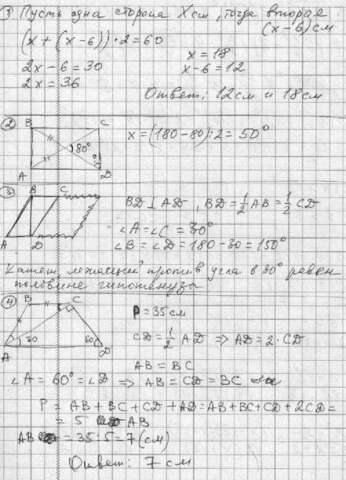 ① Пусть одна сторона X см, тогда вторая
(x-6) см
(x + (x-6)) · 2 = 60
2x - 6 = 30
2x = 36
x = 18
x-6 = 12
Ответ: 12 см и 18 см
② B C
80°
A D
x = (180-80):2 = 50°
③ B C
A D
BD ⊥ AD, BD = 1/2 AB = 1/2 CD
∠A = ∠C = 30°
∠B = ∠D = 180-30 = 150°
Катет, лежащий против угла в 30° равен
половине гипотенузы
④ B C
A 30 60 D
P = 35 см
CD = 1/2 AD ⇒ AD = 2·CD
AB = BC
∠A = 60° = ∠D ⇒ AB = CD = BC
P = AB + BC + CD + AD = AB + BC + CD + 2CD =
= 5 AB
AB = 35:5 = 7 (см)
Ответ: 7 см